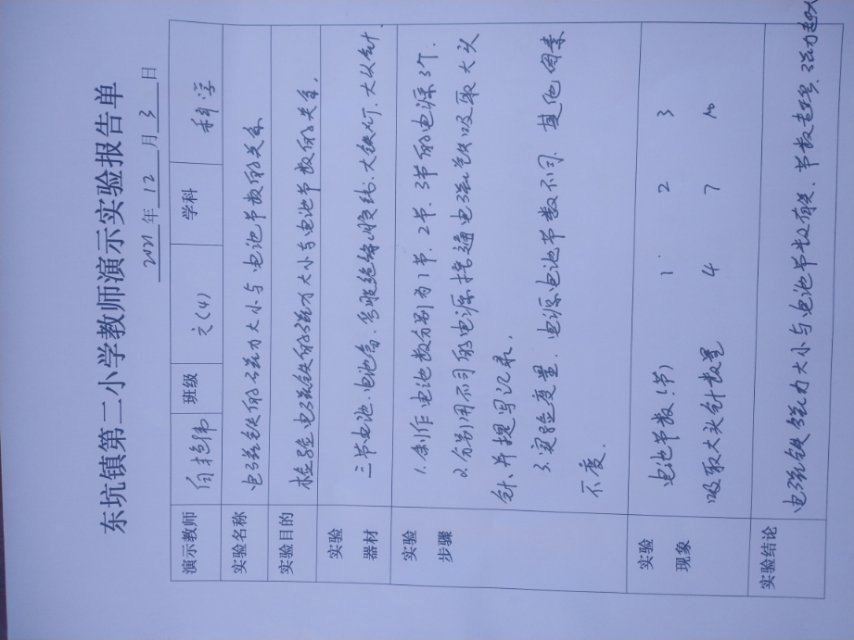 东坑镇第二小学教师演示实验报告单
2021年12月3日
演示教师 班级 六(4) 学科 科学
实验名称 电磁铁的磁力大小与电池节数的关系
实验目的 检验电磁铁的磁力大小与电池节数的关系.
实验器材 三节电池.电池盒. 大铁钉.大头针.
实验步骤 1.制作电池数分别为1节.2节.3节的电源3个.
2.分别用不同的电源接通电磁铁吸取大头
针.并填写记录.
3.实验变量.电源电池节数不同.其他因素
不变.
实验现象 电池节数(节) 1 2 3
吸取大头针数量 4 7 10
实验结论 电磁铁磁力大小与电池节数有关.节数越多.磁力越大